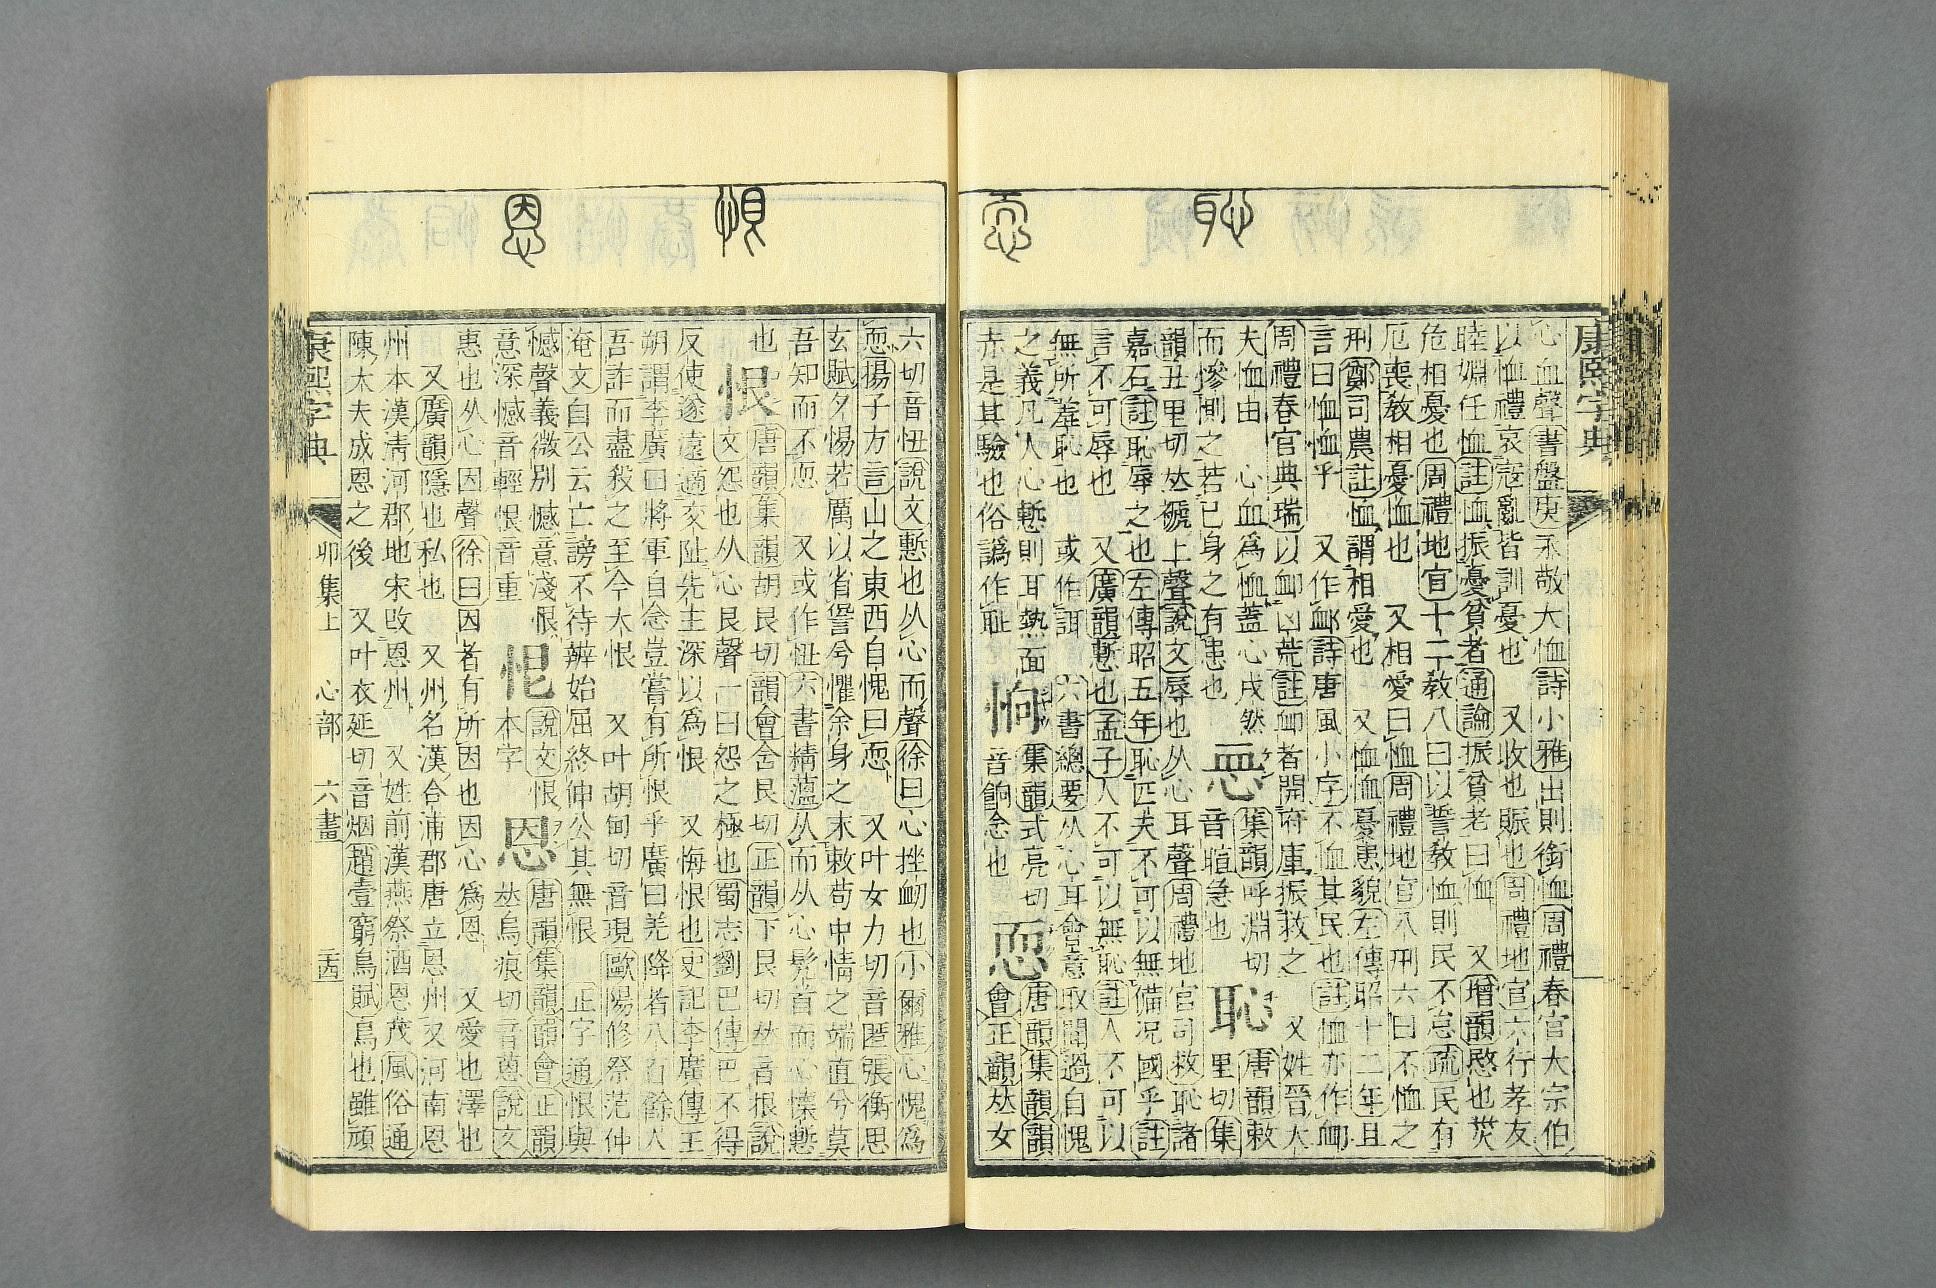 恥
恧
康熙字典
心血聲書盤庚永敬大恤詩小雅出則銜恤周禮春官大宗伯
以恤禮哀寇亂皆訓憂也 又收也賑也周禮地官六行孝友
睦婣任恤註恤振憂貧者通論振貧老曰恤 又增韻愍也災
危相憂也周禮地官十二敎八曰以誓敎恤則民不怠疏民有
厄喪敎相憂恤也 又相愛曰恤周禮地官八刑六曰不恤之
刑鄭司農註恤謂相愛也 又恤恤憂患貌左傳昭十二年且
言曰恤恤乎 又作卹詩唐風小序不恤其民也註恤亦作卹
周禮春官典瑞以卹凶荒註卹者開府庫振救之 又姓晉大
夫恤由 心血爲恤蓋心戌然 集韻呼淵切
而慘惻之若已身之有恚也 音暄急也
恥唐韻敕里切集
韻丑里切𠀤褫上聲說文辱也从心耳聲周禮地官司救恥諸
嘉石註恥辱之也左傳昭五年恥匹夫不可以無備况國乎註
言不可辱也 又廣韻慙也孟子人不可以無恥註人不可以
無所羞恥也 或作誀 六書總要从心耳會意取聞過自愧
之義凡人心慙則耳熱面赤是其驗也俗譌作耻
恦集韻式亮切音餉念也
恧唐韻集韻韻會正韻𠀤女
恨
恩
六切音忸說文慙也从心而聲徐曰心挫衂也小爾雅心愧爲
恧揚子方言山之東西自愧曰恧 又叶女力切音匿張衡思
玄賦夕惕若厲以省諐兮懼余身之未敕苟中情之端直兮莫
吾知而不恧 又或作忸六書精薀从而从心髵首而心懍慙
也
恨唐韻集韻胡艮切韻會舍艮切正韻下艮切𠀤音很說
文怨也从心艮聲一曰怨之極也蜀志劉巴傳巴不得
反使遂遠適交阯先主深以爲恨 又悔恨也史記李廣傳王
朔謂李廣曰將軍自念豈嘗有所恨乎廣曰羌降者八百餘人
吾詐而盡殺之至今大恨 又叶胡甸切音現歐陽修祭范仲
淹文自公云亡謗不待辨始屈終伸公其無恨 正字通恨與
憾聲義微別憾意淺恨意深憾音輕恨音重
說文恨本字
恩唐韻集韻韻會正韻𠀤烏痕切音蒽說文
惠也从心因聲徐曰因者有所因也因心爲恩 又愛也澤也
又廣韻隱也私也 又州名漢合浦郡唐立恩州又河南恩
州本漢淸河郡地宋改恩州 又姓前漢燕祭酒恩茂風俗通
陳大夫成恩之後 又叶衣延切音烟趙壹窮鳥賦鳥也雖頑
康熙字典 卯集上 心部 六畫